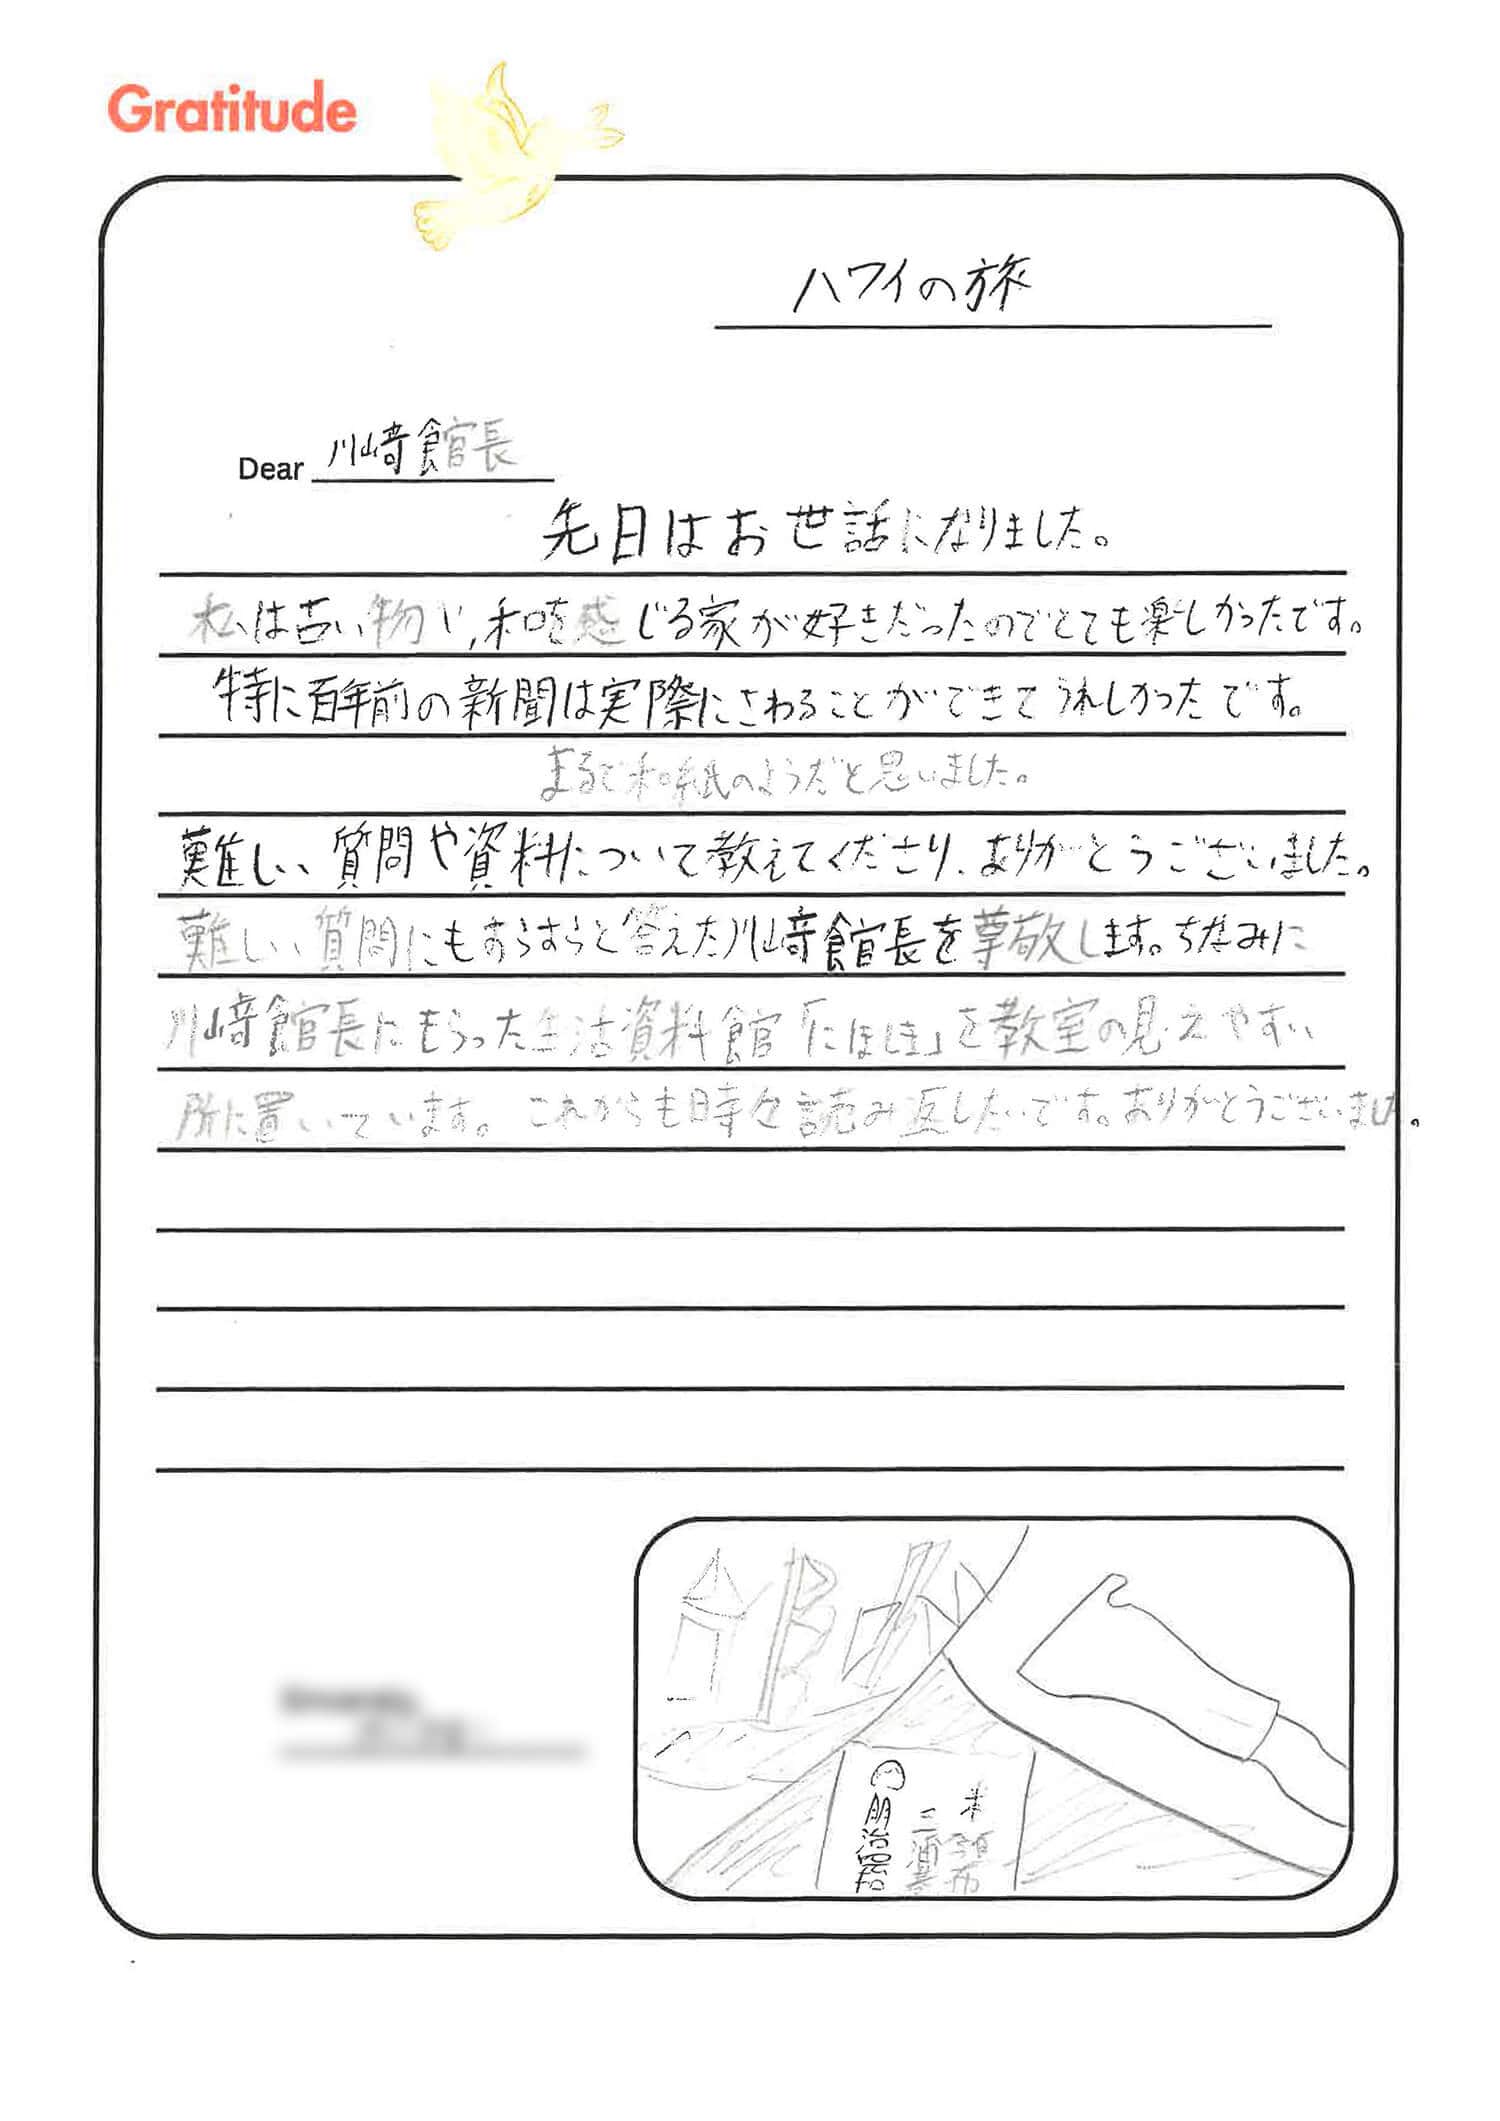 Gratitude
ハワイの旅
Dear 川﨑館長
先日はお世話になりました。
私は古い物や、和を感じる家が好きだったのでとても楽しかったです。
特に百年前の新聞は実際にさわることができてうれしかったです。
まるで和紙のようだと思いました。
難しい質問や資料について教えてくださり、ありがとうございました。
難しい質問にもすらすらと答えた川﨑館長を尊敬します。ちなみに
川﨑館長にもらった生活資料館「にほしま」を教室の見えやすい
所に置いています。これからも時々読み返したいです。ありがとうございました。
米
三浦
明治